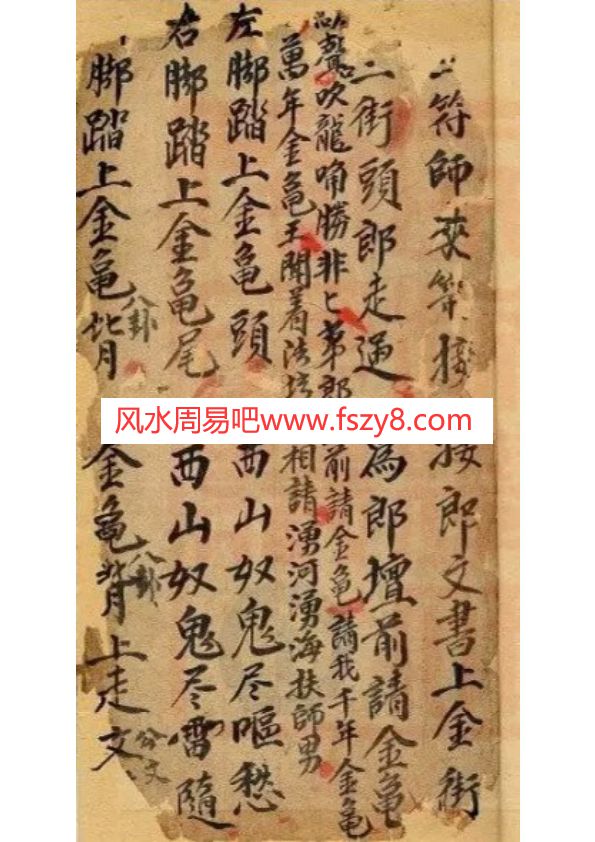 二符师来 接郎文書上金街
二街頭郎走過 為郎壇前請金龜
聲吹龍角勝非 前請金龜請我千年金龜
萬年金龜王聞着法 相請湧河湧海扶師男
左脚踏上金龜頭 西山奴鬼尽嘔愁
右脚踏上金龜尾 西山奴鬼尽雷隨
脚踏上金龜背 金龜背上走文
八卦
八卦
公文
风水周易吧www.fszy8.com